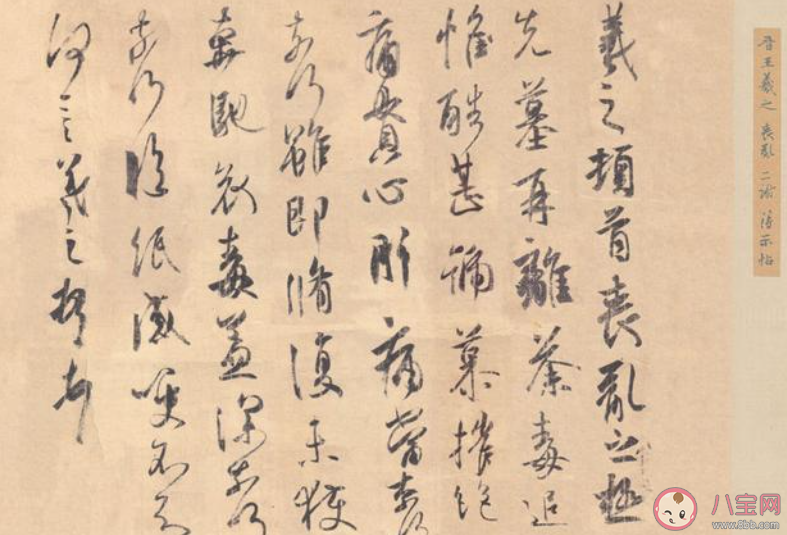 晋王羲之 丧乱 二谢 得示帖
羲之頓首喪亂之極
先墓再離荼毒追
惟酷甚號慕摧絕
痛貫心肝痛當奈何
奈何雖即脩復未獲
奔馳哀毒益深奈何
奈何臨紙感哽不知
何言羲之頓首
八宝网
www.8bb.com